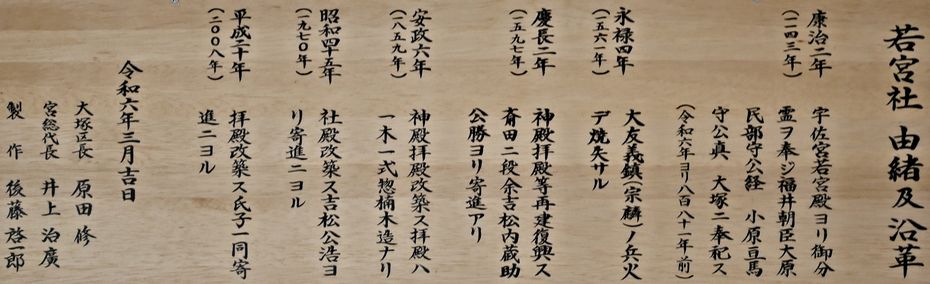 若宮社 由緒及沿革
康治二年
(一一四三年)
宇佐宮若宮殿ヨリ御分
霊ヲ奉ジ福井朝臣大原
民部守公経 小原豆馬
守公真 大塚ニ奉祀ス
(令和六年ヨリ八百八十一年前)
永禄四年
(一五六一年)
大友義鎮(宗麟)ノ兵火
デ焼失サル
慶長二年
(一五九七年)
神殿拝殿等再建復興ス
斎田二段余吉松内蔵助
公勝ヨリ寄進アリ
安政六年
(一八五九年)
神殿拝殿改築ス拝殿ハ
一木一式惣楠木造ナリ
昭和四十五年
(一九七〇年)
社殿改築ス吉松公浩ヨ
リ寄進ニヨル
平成二十年
(二〇〇八年)
拝殿改築ス氏子一同寄
進ニヨル
令和六年三月吉日
大塚区長 原田 修
宮総代長 井上 治廣
製作 後藤啓一郎